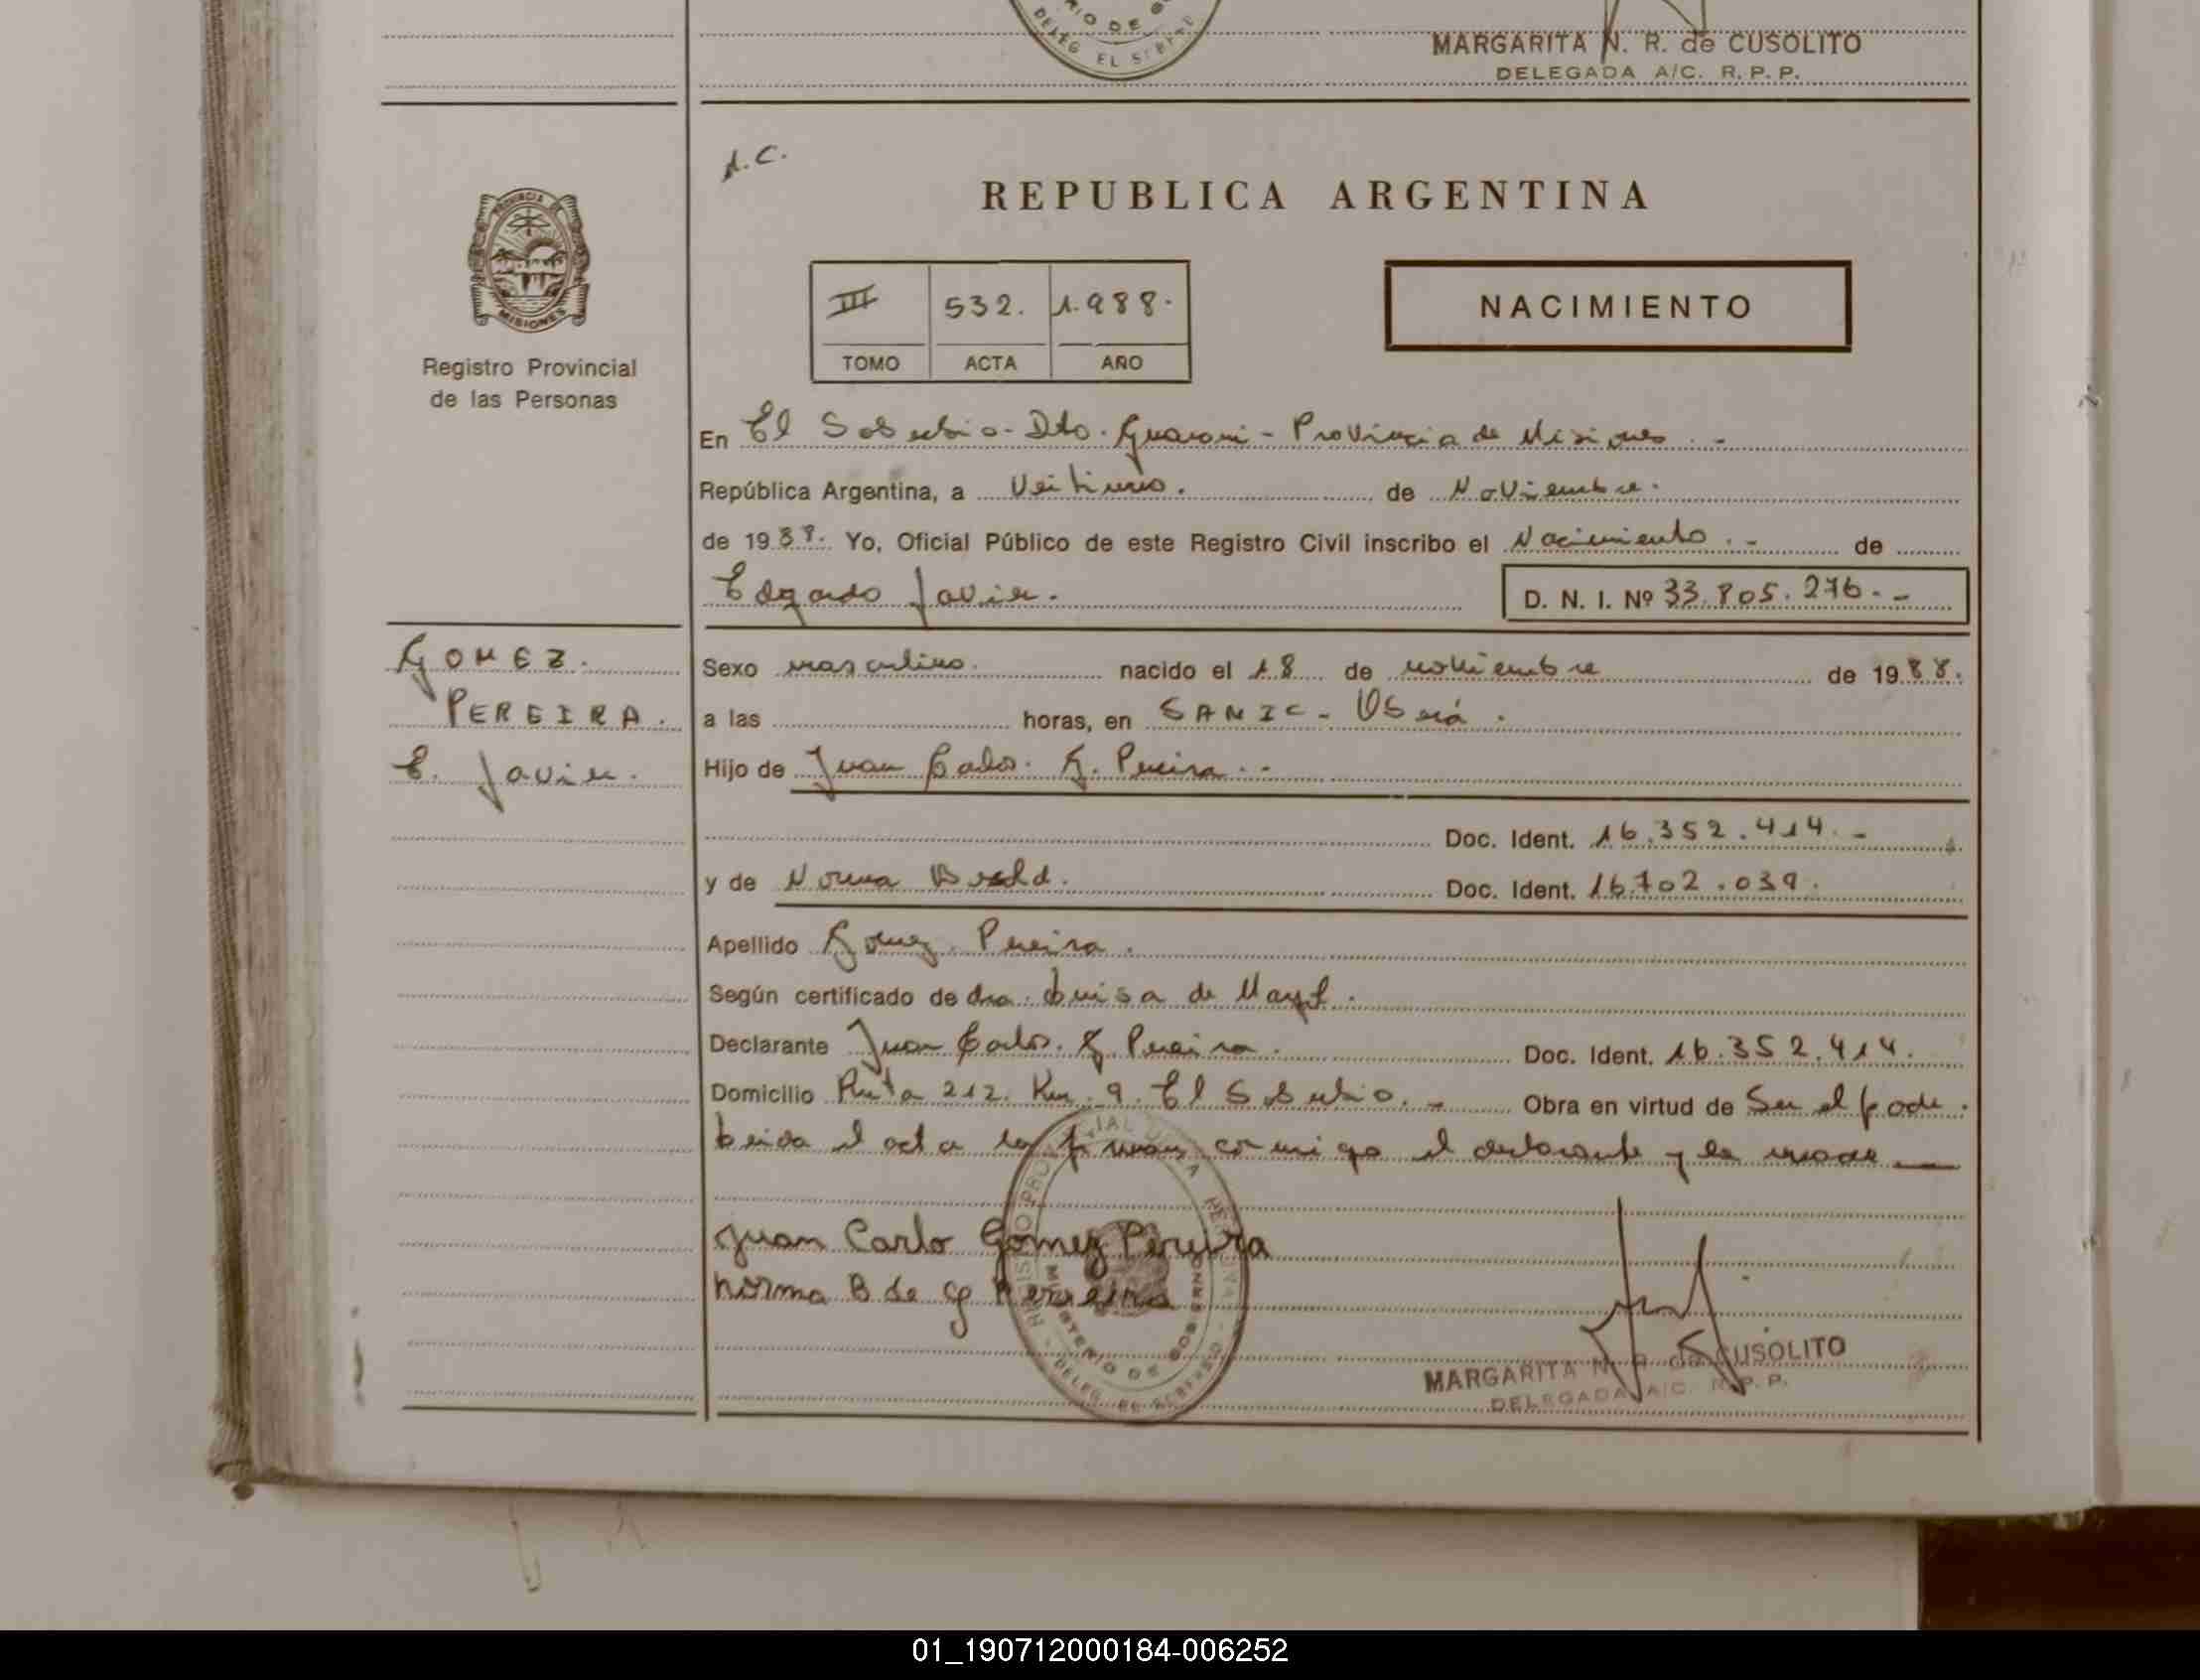 DELEG EL SOBER
MARGARITA N. R. de CUSOLITO
DELEGADA A/C. R. P. P.
A.C.
REPUBLICA ARGENTINA
PROVINCIA DE
MISIONES
III 532. 1.988.
TOMO ACTA AÑO
NACIMIENTO
Registro Provincial
de las Personas
En El Soberbio - Dto. Guarani - Provincia de Misiones . -
República Argentina, a Veitiuno. de Noviembre.
de 1988. Yo, Oficial Público de este Registro Civil inscribo el Nacimiento . - de
Edgardo Javier. D. N. I. Nº 33.805.276. -
GOMEZ.
PEREIRA.
E. Javier.
Sexo masculino. nacido el 18 de noviembre de 1988.
a las horas, en SAMIC - Oberá.
Hijo de Juan Carlos. G. Pereira. -
Doc. Ident. 16.352.414. -
y de Norma Doc. Ident. 16.702.039.
Apellido Gomez Pereira.
Según certificado de dra. Luisa de
Declarante Juan Carlos. G Pereira. Doc. Ident. 16.352.414.
Domicilio Ruta 212. Km. 9. El Soberbio. - Obra en virtud de Ser el padre.
el acta la firman conmigo el declarante y la madre —
Juan Carlo Gomez Pereira
Norma B de G Pereira
MINISTERIO DE GOBIERNO
MARGARITA N. R. de CUSOLITO
DELEGADA A/C. R. P. P.
01_190712000184-006252